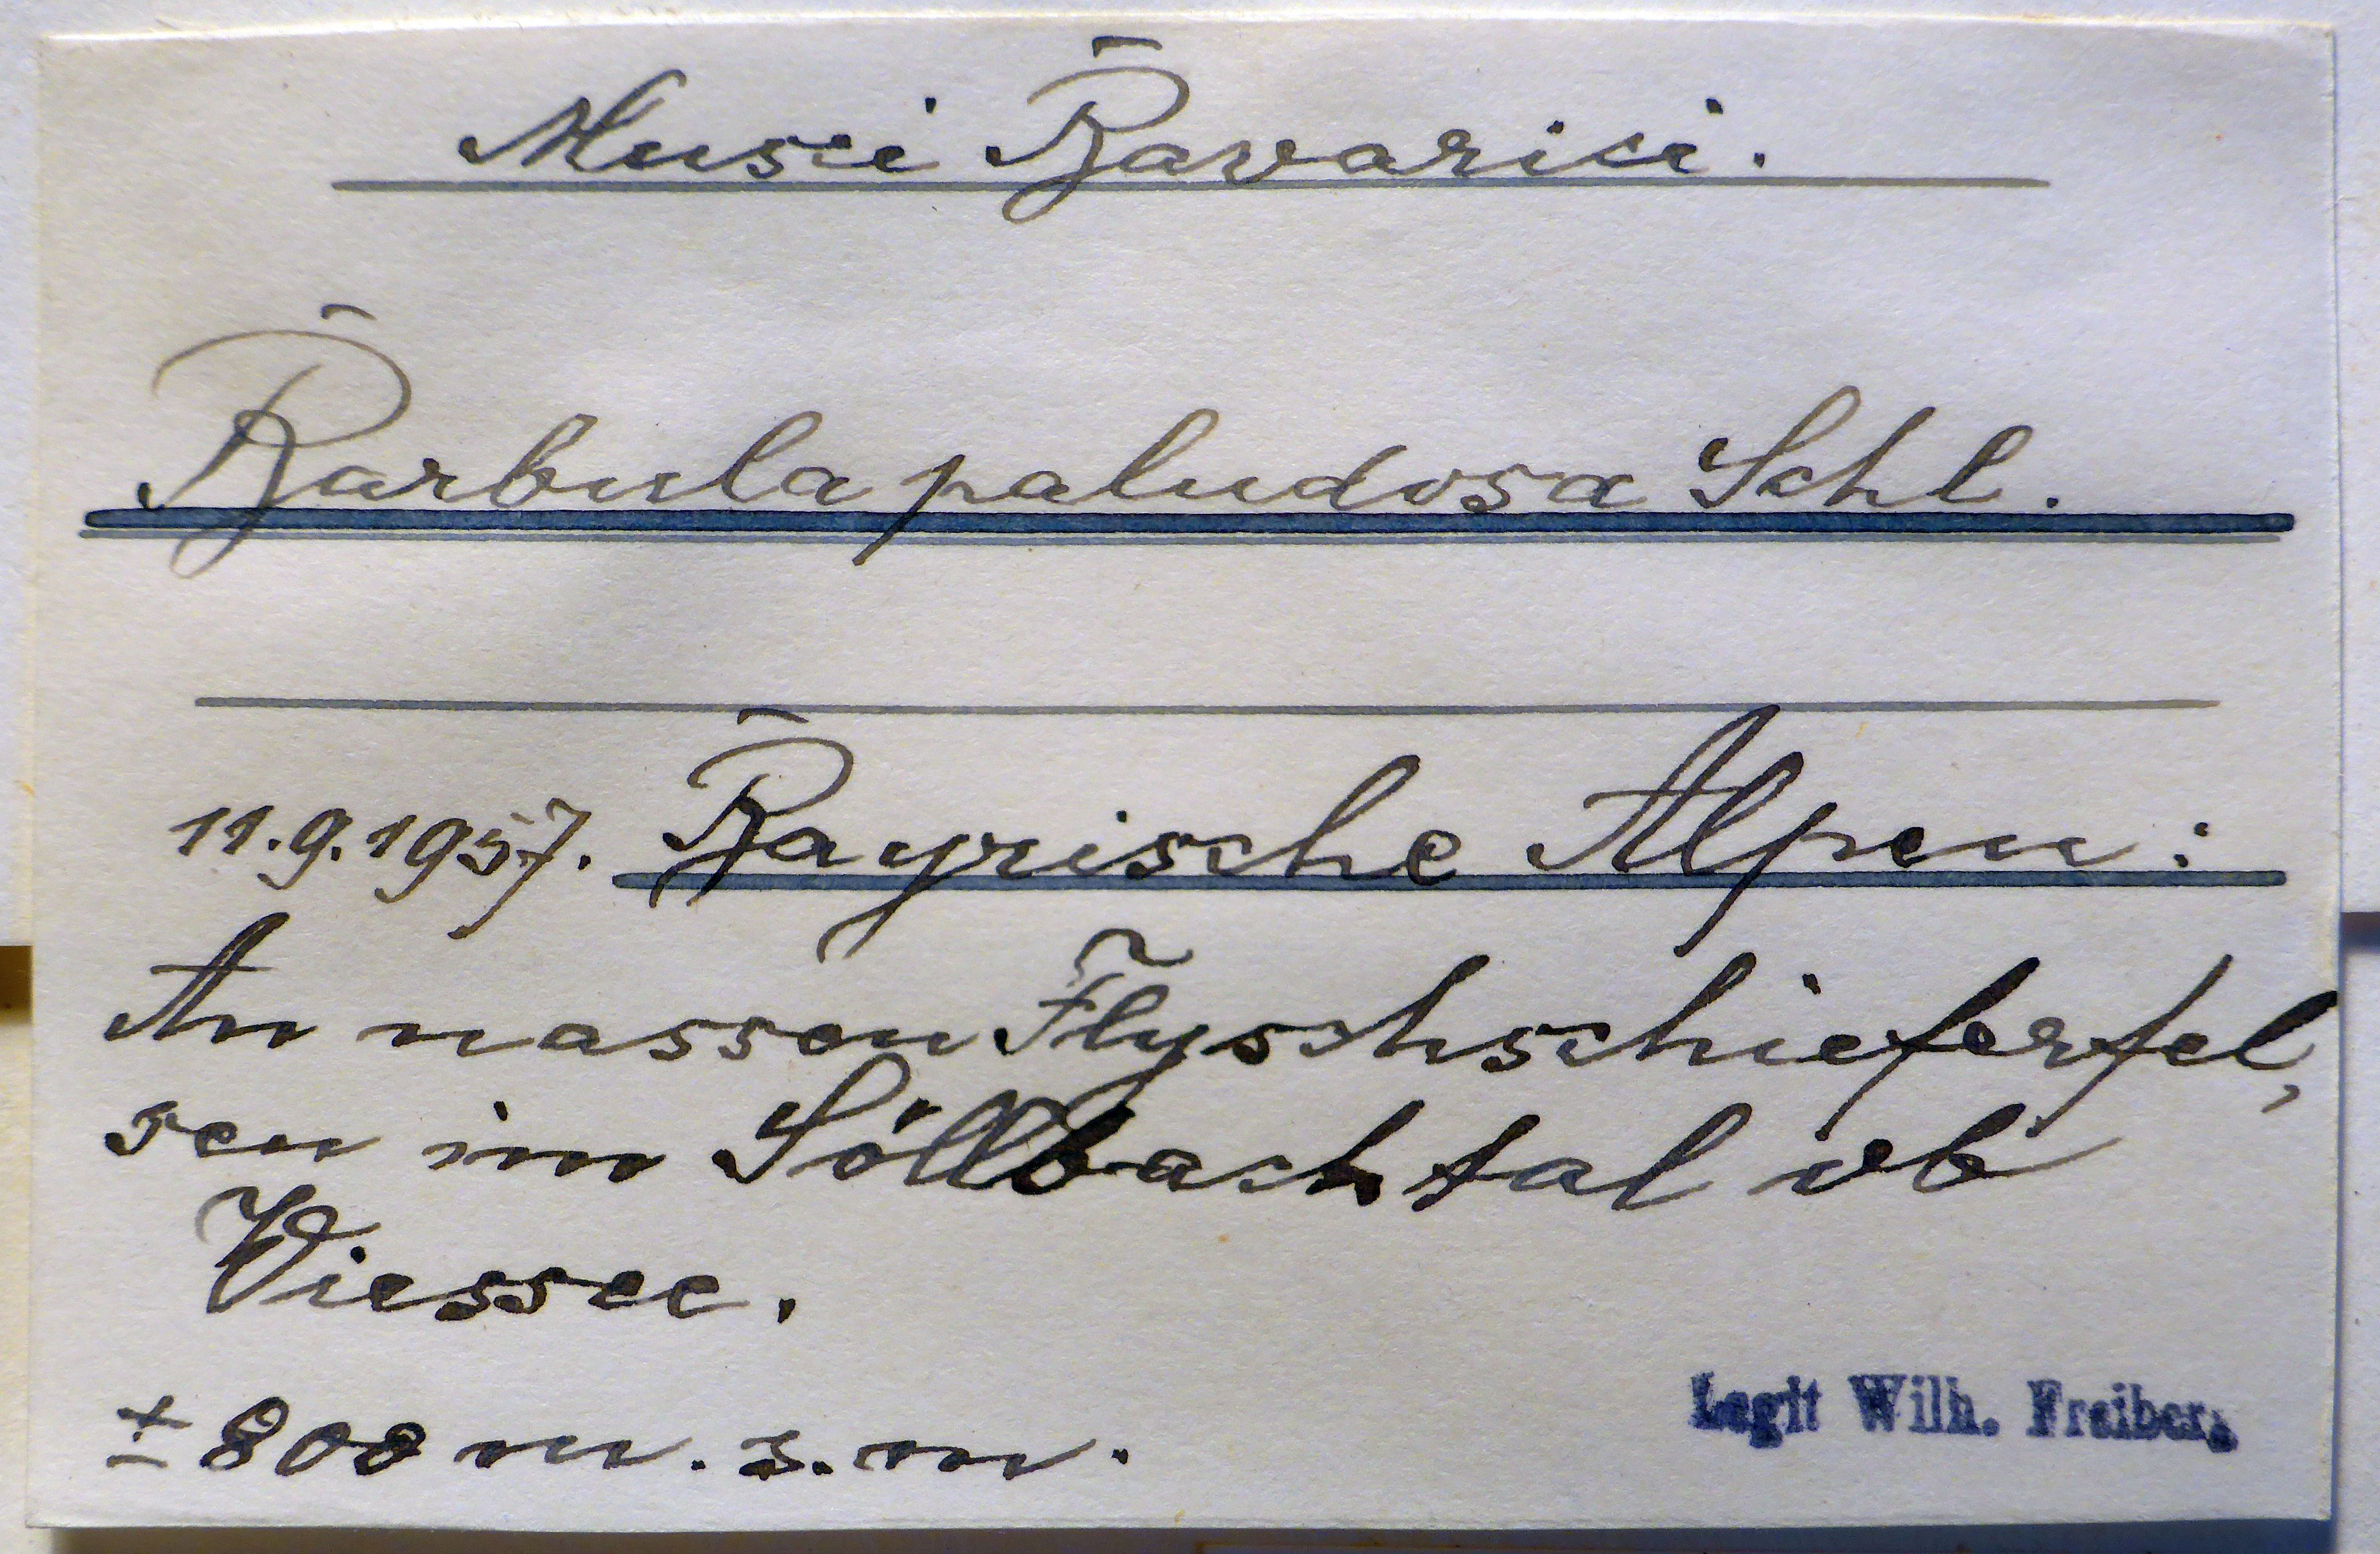 Musci Bavarici.
Barbula paludosa Schl.
11.9.1957. Bayrische Alpen:
An nassen Flyschschieferfel,
sen im Söllbachtal ob
Wiessee.
± 800 m. s. m.
Legit Wilh. Freiberg